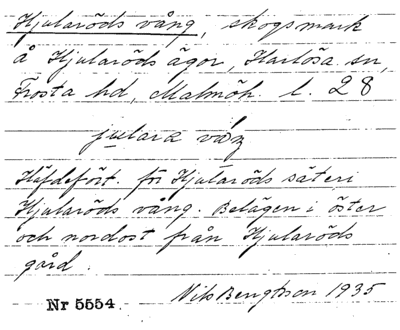 Hjularöds vång, skogsmark
å Hjularöds ägor, Harlösa sn,
Frosta hd, Malmöh. l. 28
jularα våŋ
Häfdefört. för Hjularöds säteri
Hjularöds vång. Belägen i öster
och nordost från Hjularöds
gård.
Nils Bengtsson 1935
Nr 5554